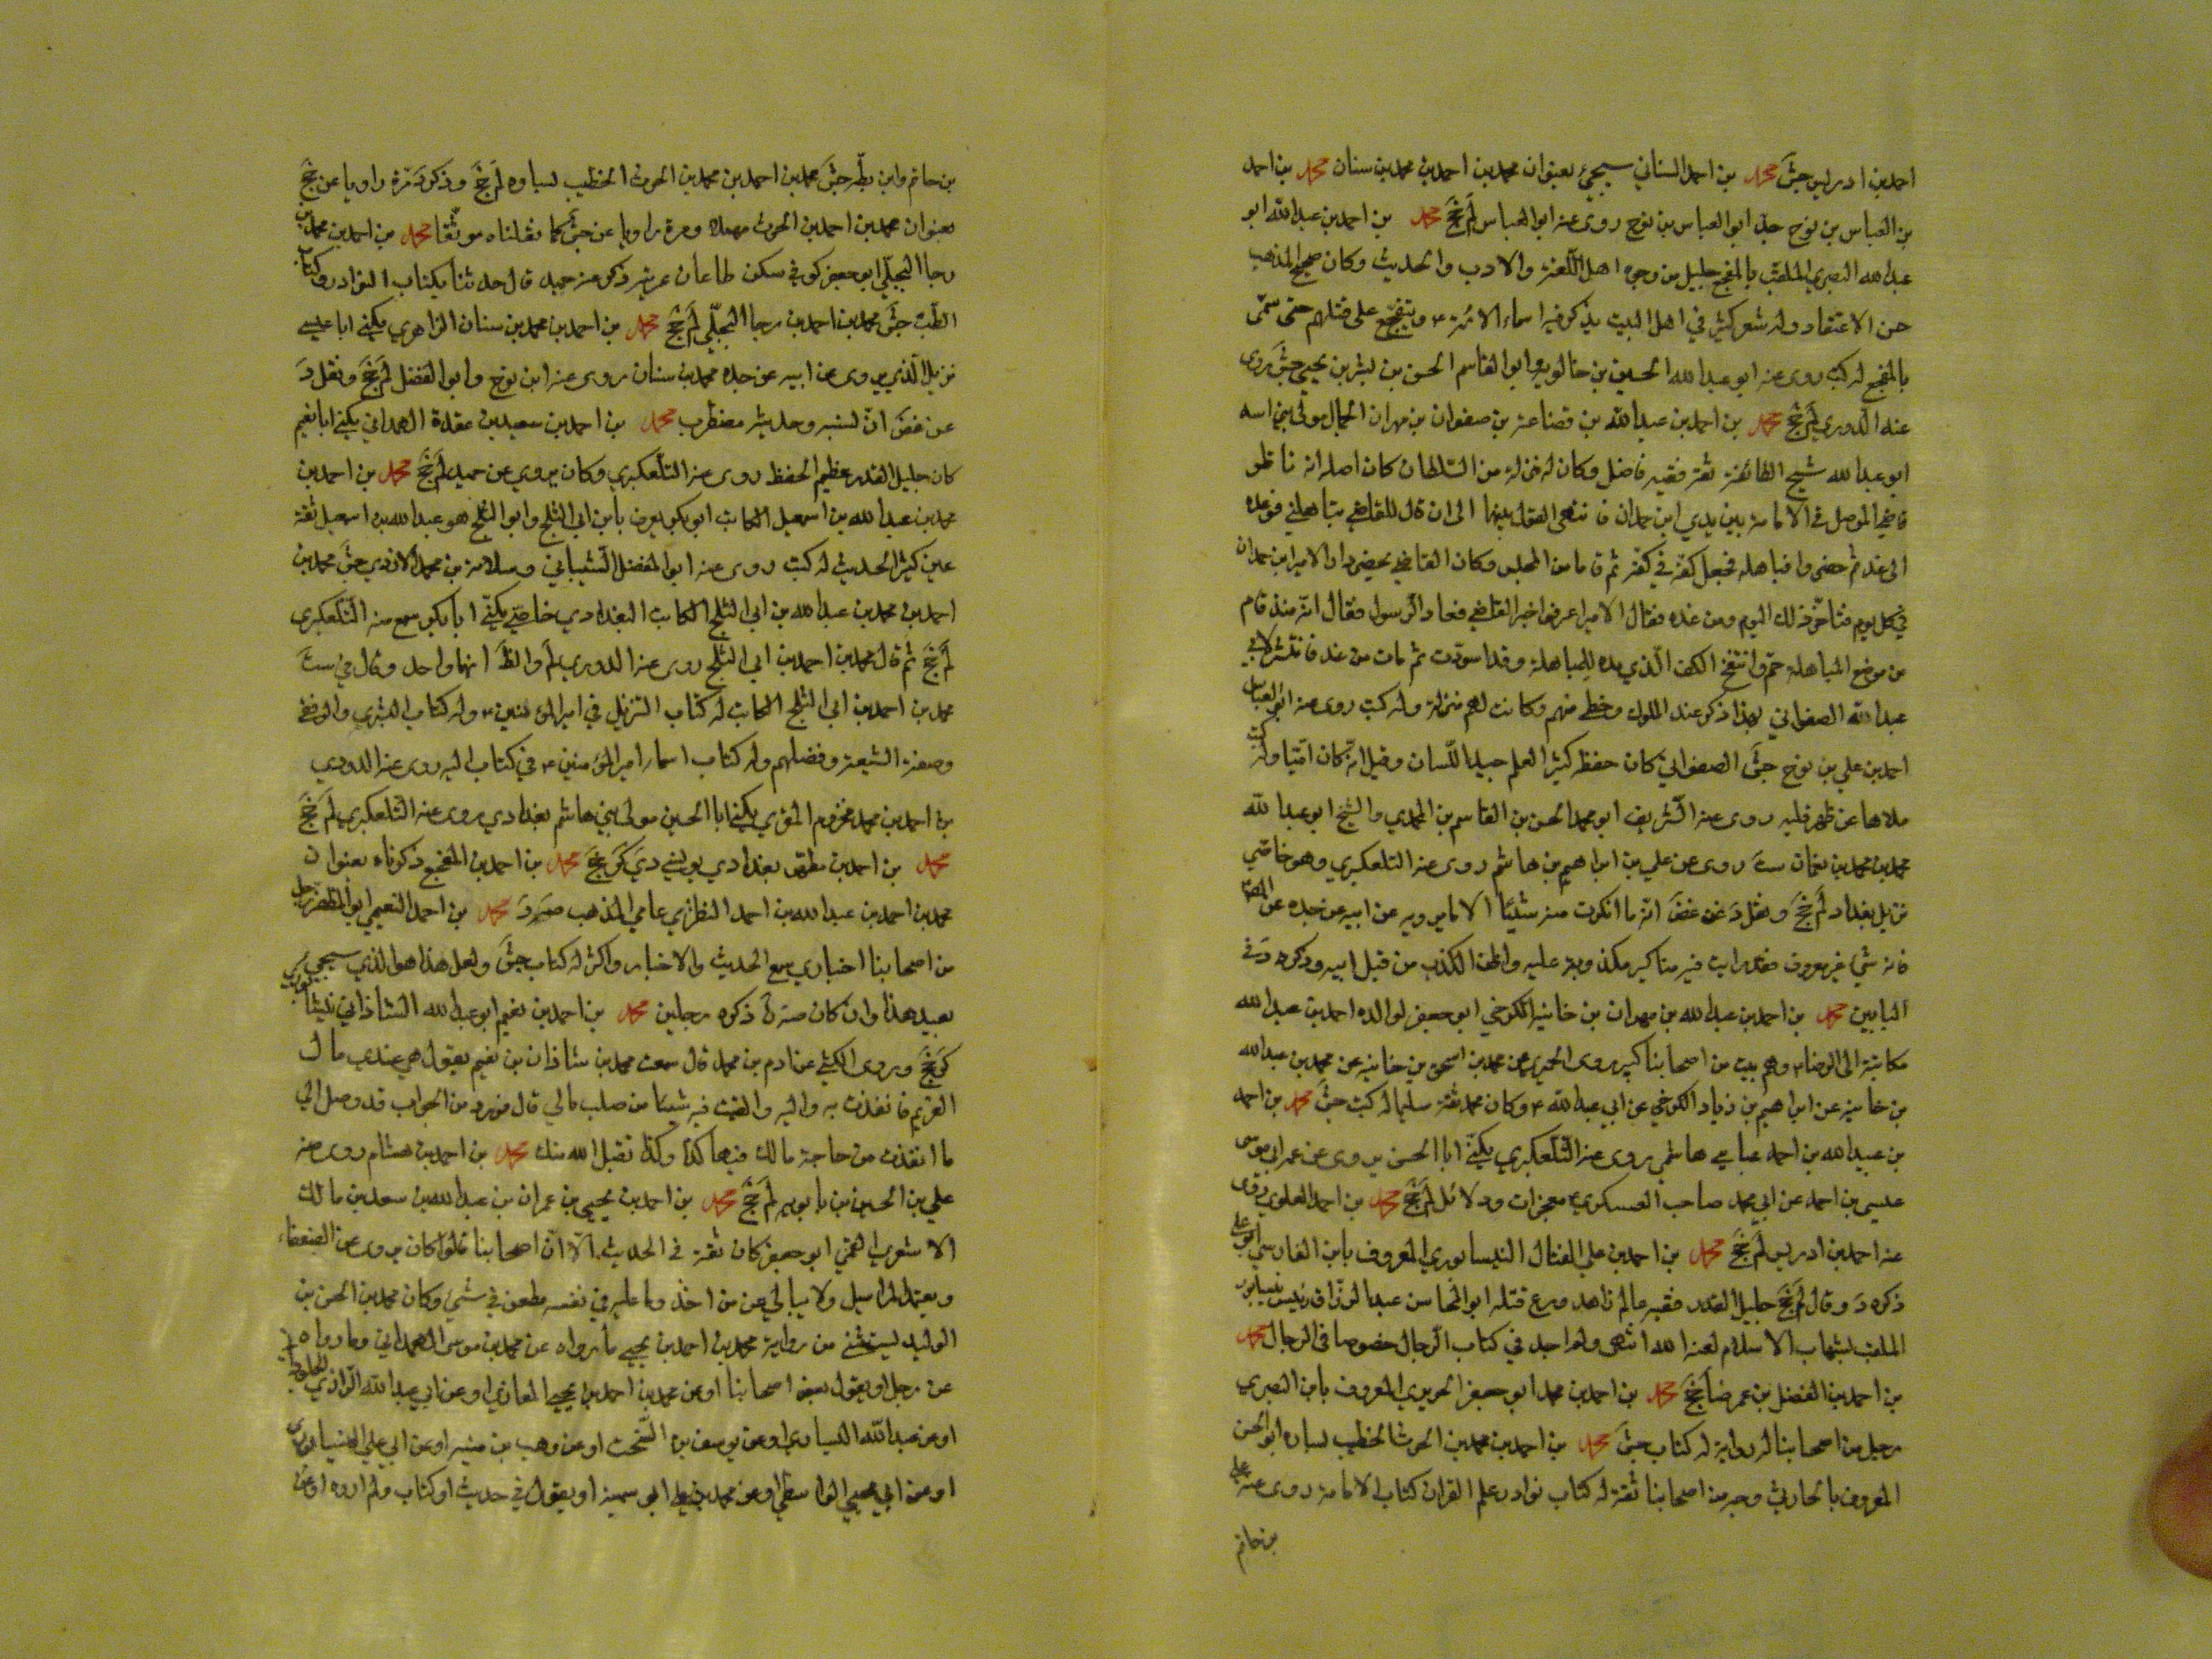 احمد بن ادريس جش محمد بن احمد السناني سيجيء بعنوان محمد بن احمد بن محمد بن سنان محمد بن احمد
بن العباس بن نوح جد ابو العباس بن نوح روى عنه ابو العباس لم جخ محمد بن احمد بن عبد الله ابو
عبد الله البصري الملقب بالمفجع جليل من وجوه اهل اللغة والادب والحديث وكان صحيح المذهب
حسن الاعتقاد وله شعر كثير في اهل البيت يذكر فيه اسماء الائمة ع ويتفجع على قتلهم حتى سمى
بالمفجع له كتب روى عنه ابو عبد الله الحسين بن خالويه وابو القاسم الحسن بن بشر بن يحيى جش روى
عنه الدوري لم جخ محمد بن احمد بن عبد الله بن قضاعة بن صفوان بن مهران الجمال مولى بني اسد
ابو عبد الله شيخ الطائفة ثقة فقيه فاضل وكان له منزلة من السلطان كان اصله انه ناظر
قاضي الموصل في الامامة بين يدي ابن حمدان فانتهى القول بينهما الى ان قال للقاضي تباهلني فوعده
الى غد ثم حضروا فباهله فجعل كفه في كفه ثم قاما من المجلس وكان القاضي يحضر دار الامير ابن حمدان
في كل يوم فتأخر ذلك اليوم ومن غده فقال الامير اعرفوا خبر القاضي فعاد الرسول فقال انه منذ قام
من موضع المباهلة حم وانتفخ الكف الذي مده للمباهلة وقد اسودت ثم مات من غد فانتشر لابي
عبد الله الصفواني بهذا ذكر عند الملوك وحظي منهم وكانت لهم منزلة وله كتب روى عنه ابو العباس
احمد بن علي بن نوح جش الصفواني كان حفظة كثير العلم جيد اللسان وقيل انه كان اميا وله كتب
املاها عن ظهر قلبه روى عنه الشريف ابو محمد الحسن بن القاسم بن المحمدي والشيخ ابو عبد الله
محمد بن محمد بن نعمان ست روى عن علي بن ابراهيم بن هاشم روى عنه التلعكبري وهو خاصي
نزيل بغداد لم جخ ونقل د عن غض انه ما انكرت منه شيئا الا ما يرويه عن ابيه عن جده عن
فانه شيء غير معروف فقد رايت فيه مناكير مكذوبة عليه واظن الكذب من قبل ابيه وذكره د في
البابين محمد بن احمد بن عبد الله بن مهران بن خانبة الكرخي ابو جعفر لوالده احمد بن عبد الله
مكاتبة الى الرضا ع وهم بيت من اصحابنا كبير روى الحميري عن محمد بن اسحق بن خانبة عن محمد بن عبد الله
بن خانبة عن ابراهيم بن زياد الكرخي عن ابي عبد الله ع وكان محمد ثقة سليما له كتب جش محمد بن احمد
بن عبيد الله بن احمد عباسي هاشمي روى عنه التلعكبري يكنى ابا الحسن يروى عن عم ابي موسى
عيسى بن احمد عن ابي محمد صاحب العسكري ع معجزات ودلائل لم جخ محمد بن احمد العلوي روى
عنه احمد بن ادريس لم جخ محمد بن احمد بن علي الفتال النيسابوري المعروف بابن الفارسي ابو علي
ذكره د وقال لم جخ جليل القدر فقيه عالم زاهد ورع قتله ابو المحاسن عبد الرزاق رئيس نيسابور
الملقب بشهاب الاسلام لعنه الله انتهى ولم اجد في كتاب الرجال خصوصا في الرجال محمد
بن احمد بن الفضل بن عمر ضا جخ محمد بن احمد بن محمد ابو جعفر الحريري المعروف بابن البصري
رجل من اصحابنا له رواية له كتاب جش محمد بن احمد بن محمد بن الحرث الخطيب بساوه ابو الحسن
المعروف بالحارثي وجه من اصحابنا ثقة له كتاب نوادر علم القران كتاب الامامة روى عنه علي
بن حاتم
بن حاتم وابن بطة جش محمد بن احمد بن محمد بن الحرث الخطيب بساوه لم جخ وذكر د مرة راويا عن جخ
بعنوان محمد بن احمد بن الحرث مهملا ومرة راويا عن جش كما نقلناه موثقا محمد بن احمد بن محمد بن
رجا البجلي ابو جعفر كوفي سكن طاعان عريثر ذكر عنه حميد قال حدثنا بكتاب النوادر وكتاب
الطب جش محمد بن احمد بن رجا البجلي لم جخ محمد بن احمد بن محمد بن سنان الزاهري يكنى ابا عيسى
نزيل الري يروى عن ابيه عن جده محمد بن سنان روى عنه ابن نوح وابو الفضل لم جخ ونقل د
عن غض ان نسبه وحديثه مضطرب محمد بن احمد بن سعيد بن عقدة الهمداني يكنى ابا نعيم
كان جليل القدر عظيم الحفظ روى عنه التلعكبري وكان يروي عن حميد لم جخ محمد بن احمد بن
محمد بن عبد الله بن اسمعيل الكاتب ابو بكر يعرف بابن ابي الثلج وابو الثلج هو عبد الله بن اسمعيل ثقة
عين كثير الحديث له كتب روى عنه ابو المفضل الشيباني وسلامة بن محمد الارزني جش محمد بن
احمد بن محمد بن عبد الله بن ابي الثلج الكاتب البغدادي خاصي يكنى ابا بكر سمع منه التلعكبري
لم جخ ثم قال محمد بن احمد بن ابي الثلج روى عنه الدوري لم والظ انهما واحد وقال في ست
محمد بن احمد بن ابي الثلج الكاتب له كتاب التنزيل في امير المؤمنين ع وله كتاب البشرى والزلفى
وصفة الشيعة وفضلهم وله كتاب اسماء امير المؤمنين ع في كتاب الله روى عنه الدوري
بن احمد بن محمد مخزوم المقري يكنى ابا الحسين مولى بني هاشم بغدادي روى عنه التلعكبري لم جخ
محمد بن احمد بن مطهر بغدادي يونسي دي كر جخ محمد بن احمد بن المفجع ذكرناه بعنوان
محمد بن احمد بن عبد الله بن احمد النطنزي عامي المذهب صه د محمد بن احمد النعيمي ابو المظفر رجل
من اصحابنا اخباري سمع الحديث والاخبار واكثر له كتاب جش ولعل هذا هو الذي سيجيء
بعيد هذا وان كان ذكره رجلين محمد بن احمد بن نعيم ابو عبد الله الشاذاني نيشابوري
كر جخ وروى الكشي عن ادم بن محمد قال سمعت محمد بن شاذان بن نعيم يقول جمع عندي مال
الغريم فانفذت به واليه والقيت فيه شيئا من صلب مالي قال فورد من الجواب قد وصل الي
ما انفذت من خاصة مالك فيها كذا وكذا تقبل الله منك محمد بن احمد بن هشام روى عنه
علي بن الحسين بن بابويه لم جخ محمد بن احمد بن يحيى بن عمران بن عبد الله بن سعد بن مالك
الاشعري القمي ابو جعفر كان ثقة في الحديث الا ان اصحابنا قالوا كان يروى عن الضعفاء
ويعتمد المراسيل ولا يبالي عن من اخذ وما عليه في نفسه مطعن في شيء وكان محمد بن الحسن بن
الوليد يستثني من رواية محمد بن احمد بن يحيى ما رواه عن محمد بن موسى الهمداني وما رواه
عن رجل او يقول بعض اصحابنا او عن محمد بن احمد بن يحيى المعاذي او عن ابي عبد الله الرازي الجاموراني
او عن عبد الله السياري او عن يوسف بن السخت او عن وهب بن منبه او عن ابي علي النيسابوري
او عن ابي يحيى الواسطي او عن محمد بن علي ابو سمينة او يقول في حديث او كتاب ولم اروه او عن